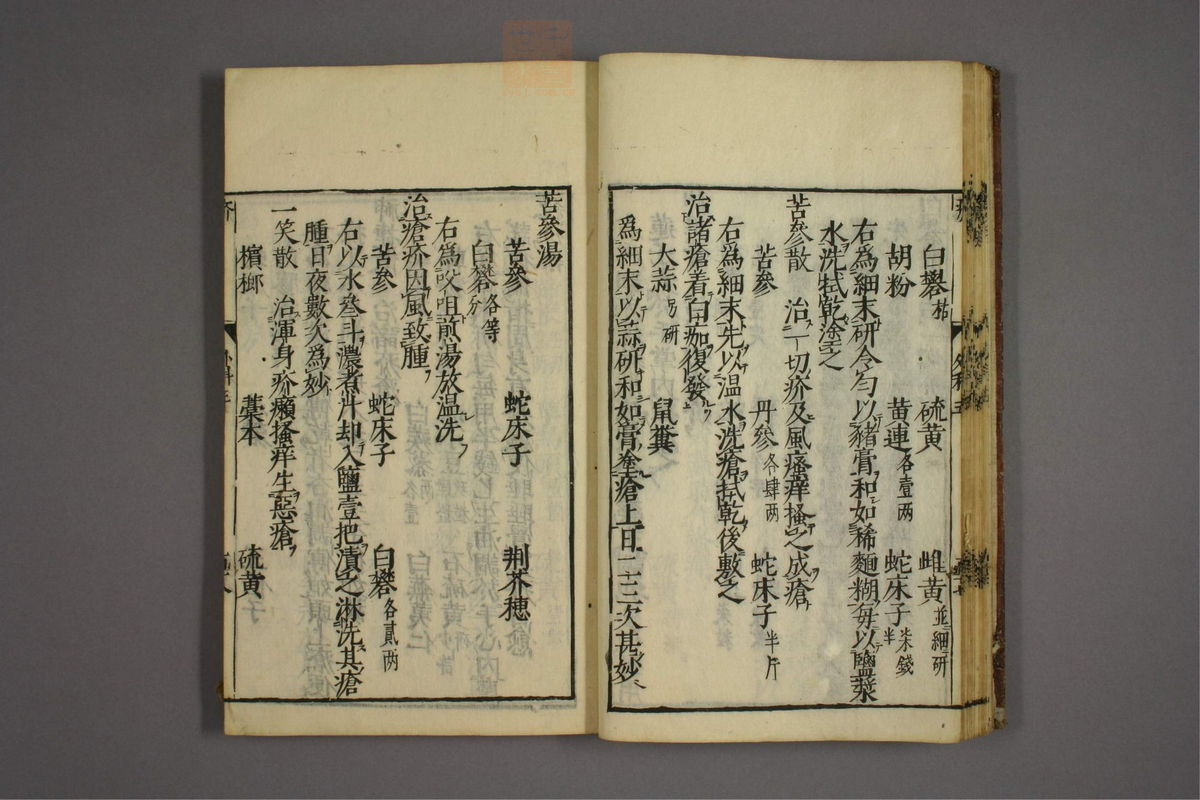 白礬枯 硫黄 雌黄並細研
胡粉 黄連各壹两 蛇床子柒錢半
右為細末研令匀以豬膏和如稀麵糊每以鹽漿
水洗拭乾塗之
苦參散 治一切疥及風瘙痒搔之成瘡
苦參 丹參各肆两 蛇床子半斤
右為細末先以温水洗瘡拭乾後敷之
治諸瘡着白痂復發
大蒜 鼠糞
爲細末以蒜研和如膏塗瘡上日二三次甚妙
苦參湯
苦參 蛇床子 荆芥穂
白礬各等分
右為㕮咀煎湯放温洗
治瘡疥因風致腫
苦參 蛇床子 白礬各貳两
右以水叄斗濃煮汁却入鹽壹把漬之淋洗其瘡
腫日夜數次為妙
一笑散 治渾身疥癩搔痒生惡瘡
檳榔 藁本 硫黄